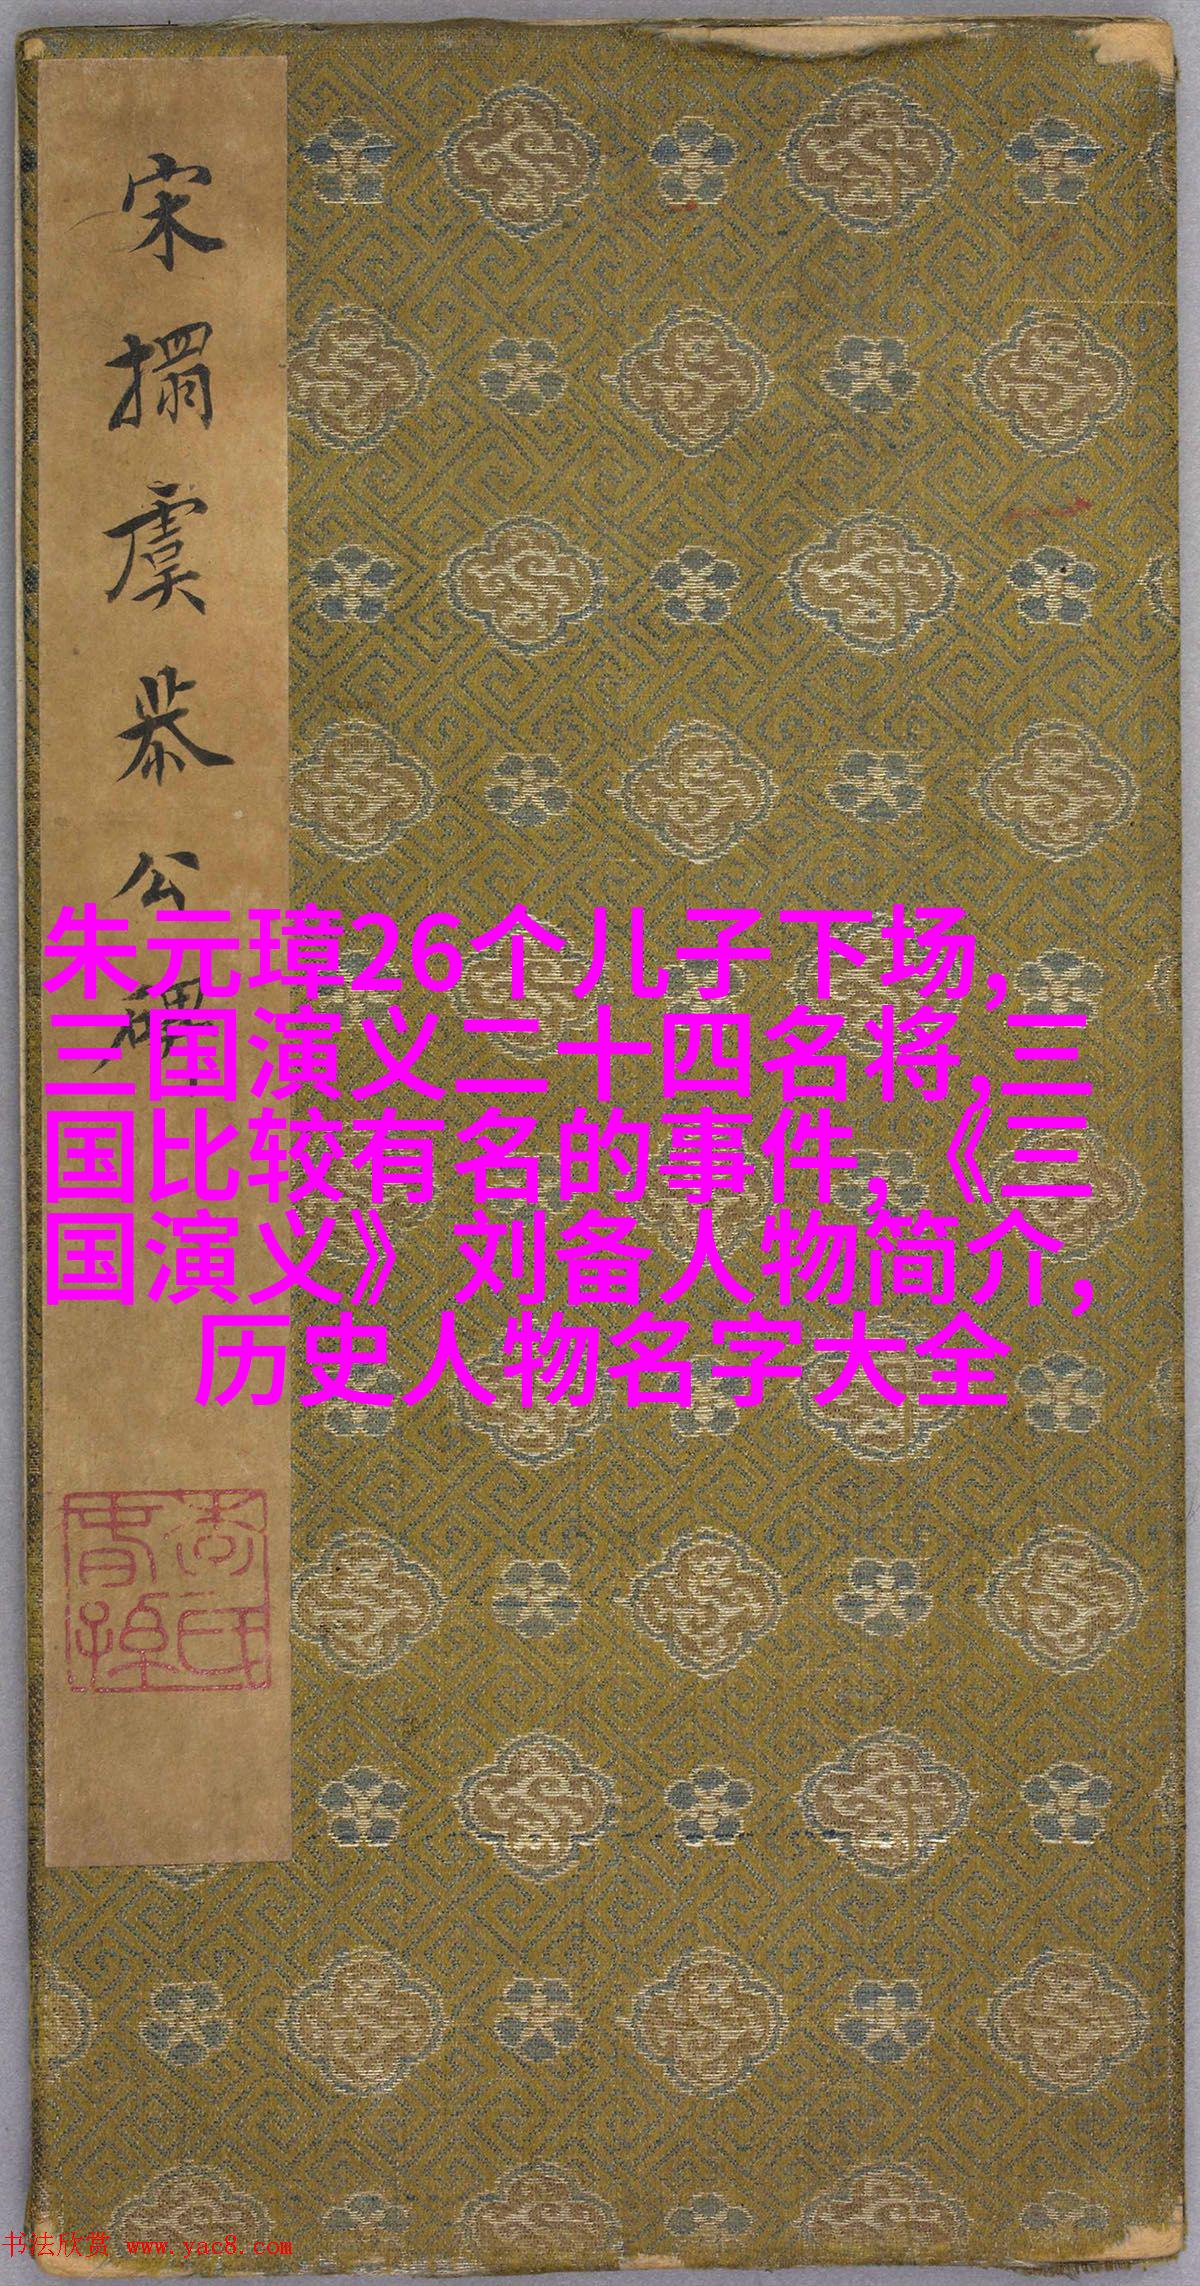 宋搨虞恭公碑
朱元璋26个儿子下场,
三国演义二十四名将,三
国比较有名的事件,《三
国演义》刘备人物简介,
历史人物名字大全
书法欣赏 www.yac8.com